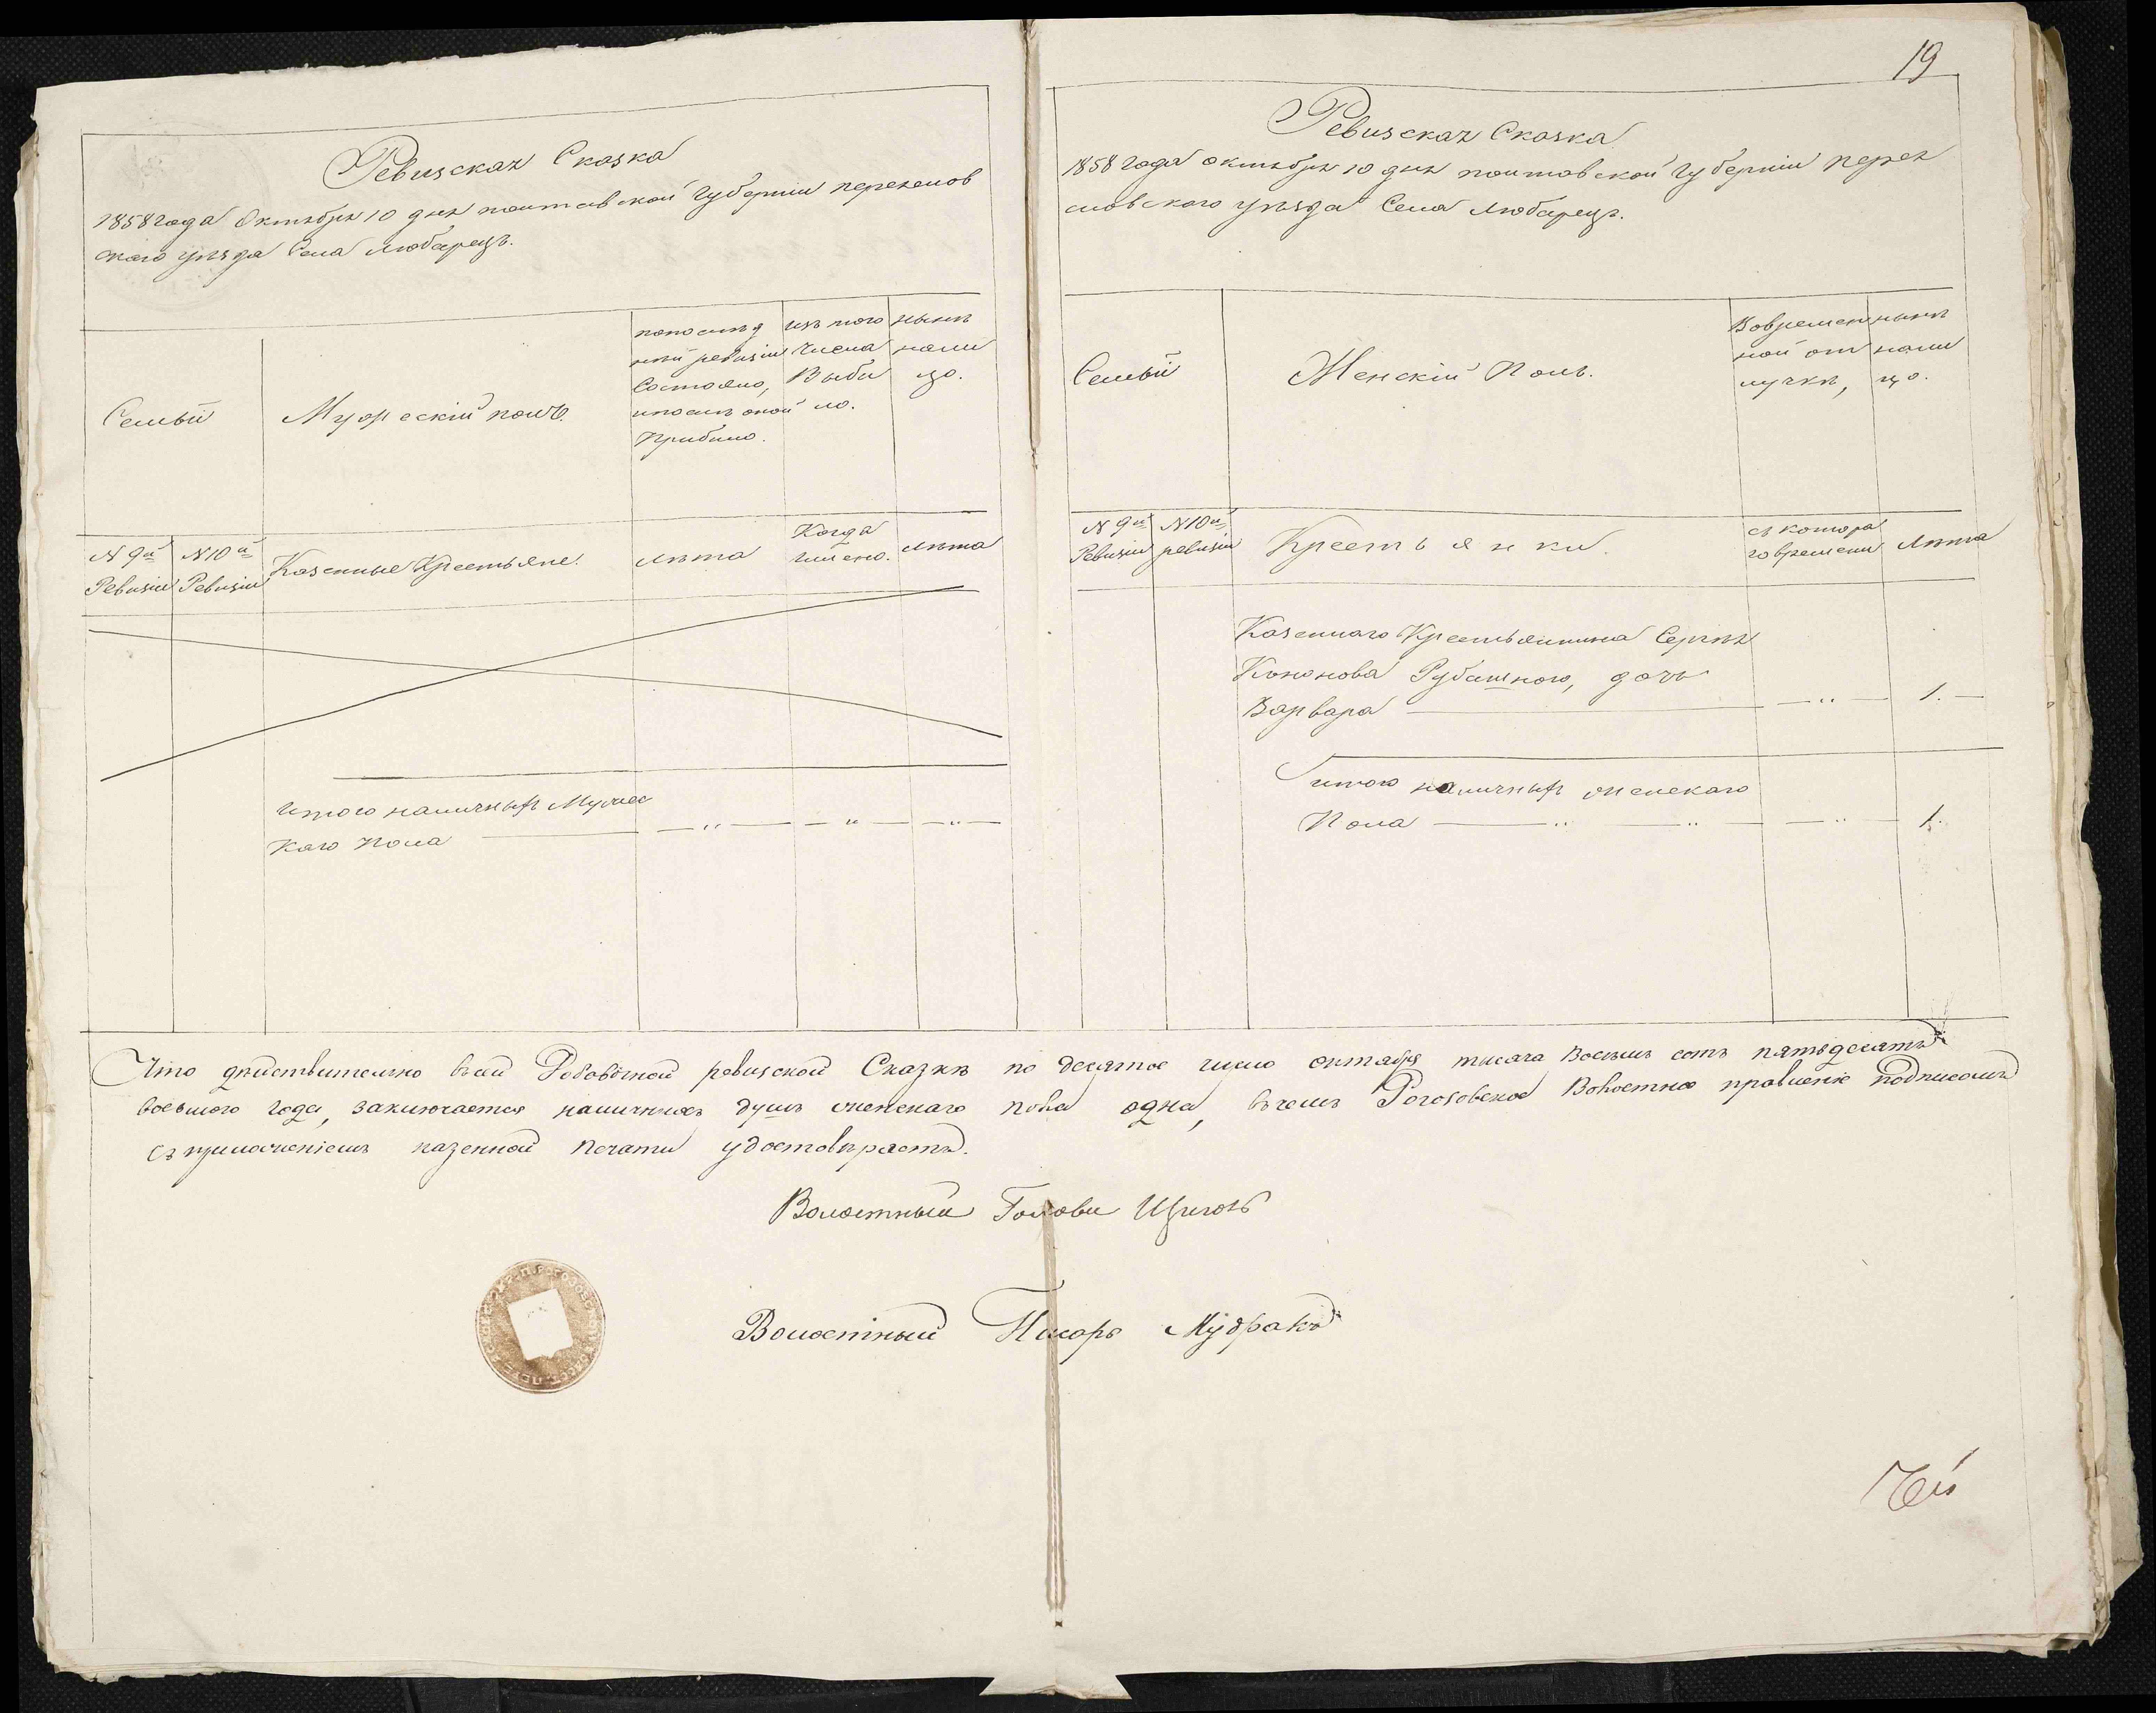 Ревизская Сказка
1858 года Октября 10 дня полтавской Губерніи переяслов
скаго уѣзда Села Любарецъ.
Семьи
Мужескій полъ.
по послѣд
ней ревизіи
Состояло,
и послѣ оной
Прибыло.
изъ того
Числа
Выбы
ло.
нынѣ
нали
цо.
N 9й
Ревизіи
N 10й
Ревизіи
Казенные Крестьяне.
Лѣта
Когда
имено.
Лѣта
Итого наличныхъ Мужес
Каго Пола — " — — " — — " —
19
Ревизская Сказка
1858 года октября 10 дня полтавской Губерніи перея
словскаго уѣзда Села Любарецъ.
Семьи
Женскій Полъ.
Вовремен
ной от
лучкѣ,
нынѣ
нали
цо.
N 9й
Ревизіи
N 10й
ревизіи
Крестьянки.
съ котора
го времени
Лѣта
Казеннаго Крестьянина Сергѣя
Кононова Рубашного, дочь
Варвара — " — 1. —
Итого наличныхъ женскаго
Пола — " — " — — " — 1.
Что действительно въ сей ревизской Сказкѣ по десятое число октября тысяча восемь сотъ пятьдесятъ
восьмого года, заключается наличныхъ душъ женскаго пола одна, въ чемъ Рогозовское Волостное правленіе подписомъ
съ приложеніемъ казенной печати удостовѣряетъ.
Волостный Голова
Волостный Писарь Мудракъ